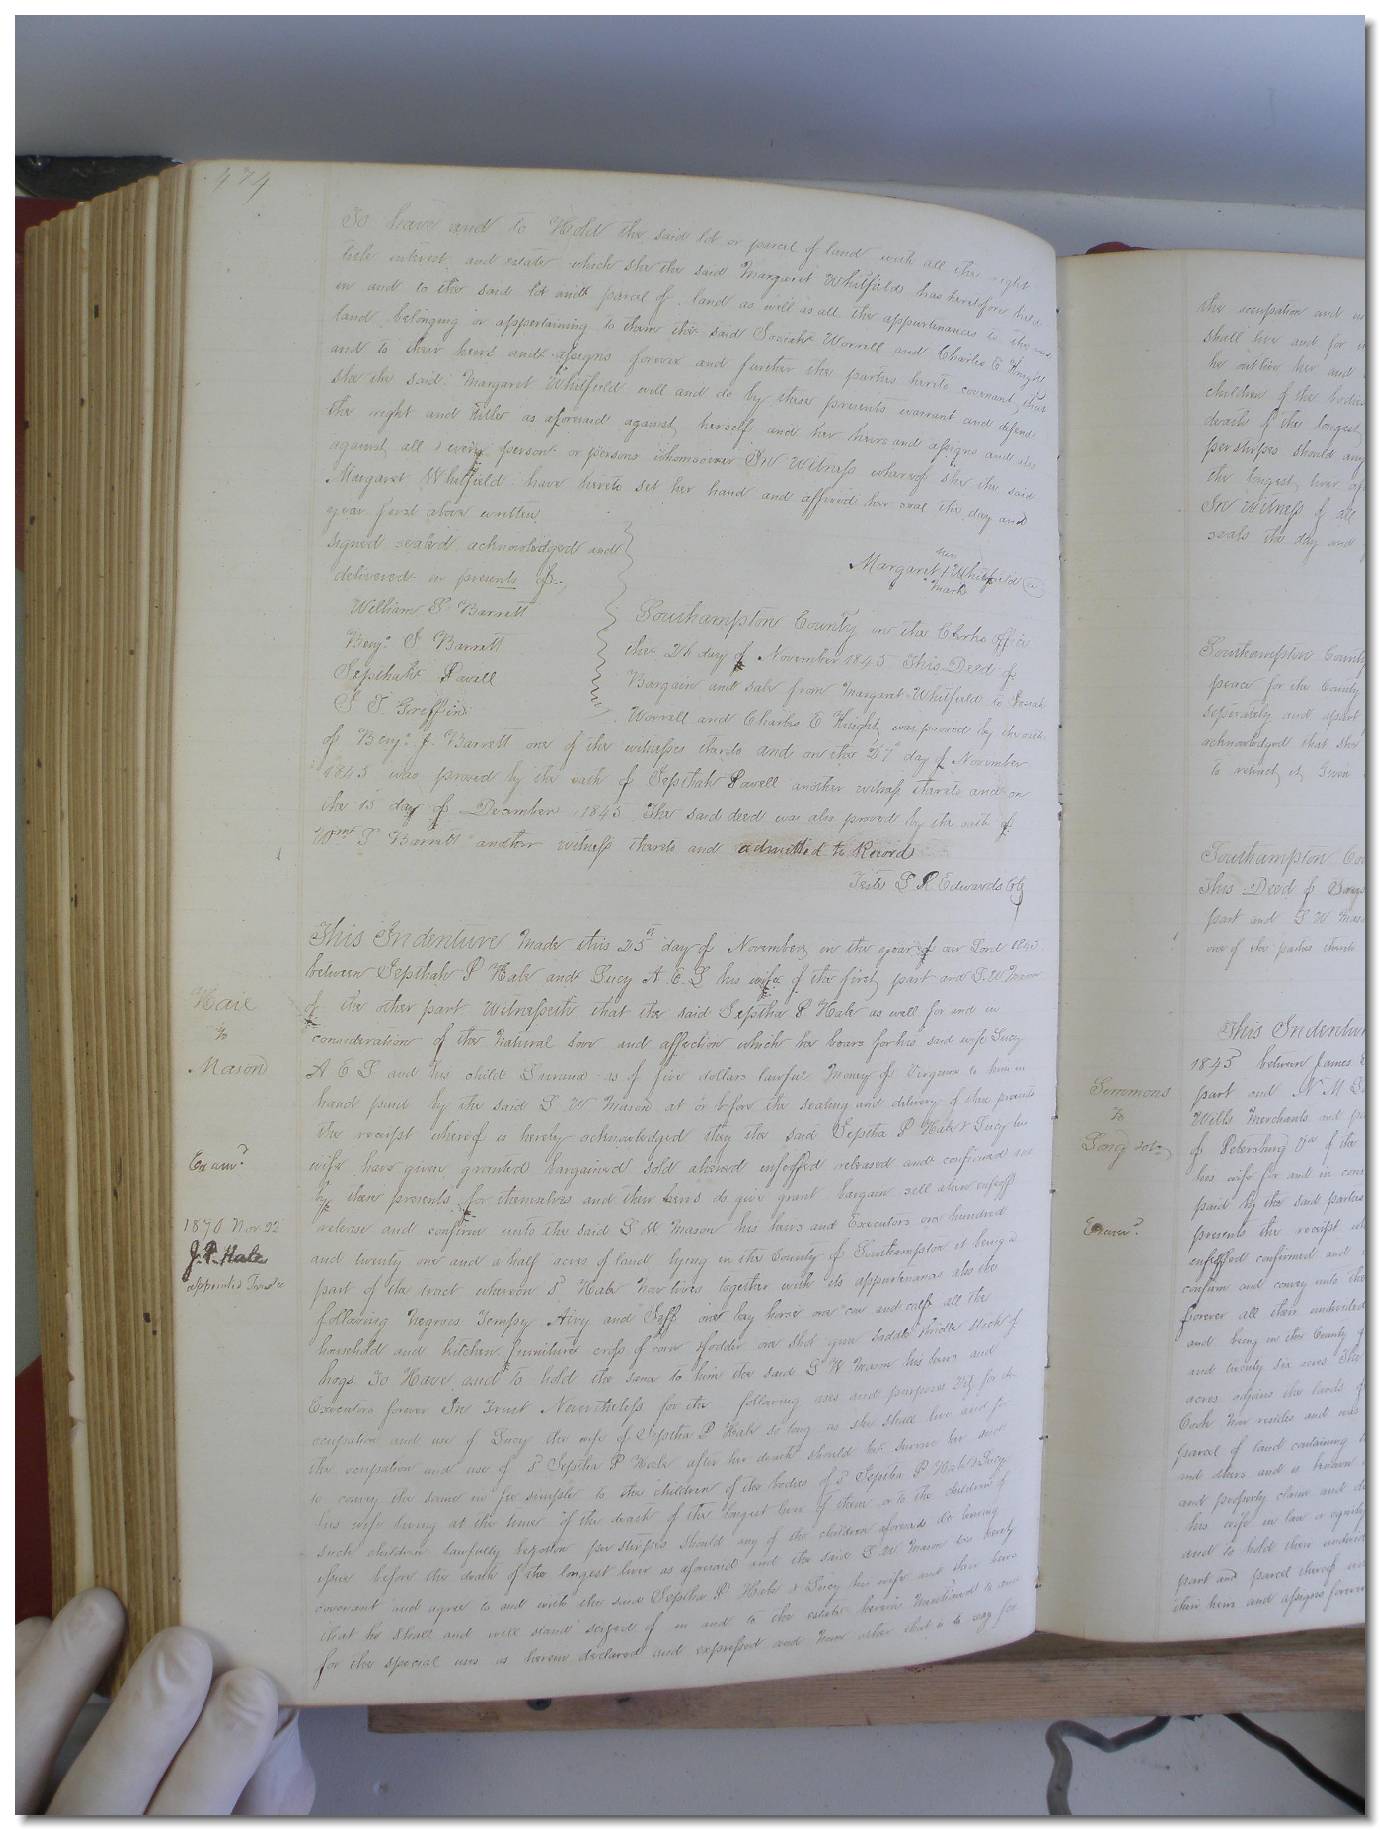 474
To have and to Hold the said lot or parcel of land with all the right
title interest and estate which she the said Margaret Whitfield has heretofore held
in and to the said lot and parcel of land as well as all the appurtenances to the said
land belonging or appertaining to them the said Josiah Worrell and Charles E Knight
and to their heirs and assigns forever and further the parties hereto covenant that
she the said Margaret Whitfield will and do by these presents warrant and defend
the right and title as aforesaid against herself and her heirs and assigns and also
against all & every person or persons whomsoever In Witness whereof she the said
Margaret Whitfield have hereto set her hand and affixed her seal the day and
year first above written
signed sealed acknowledged and
delivered in presents of
her
Margaret + Whitfield
mark
William S Barrett
Benjn J Barrett
Jepthah Powell
J T Griffin
Southampton County in the Clerks office
the 26 day of November 1845 This Deed of
Bargain and sale from Margaret Whitfield to Josiah
Worrell and Charles E Knight was proved by the oath
of Benjn J. Barrett one of the witnesses thereto and on the 27th day of November
1845 was proved by the oath of Jepthah Powell another witness thereto and on
the 15 day of December 1845 The said deed was also proved by the oath of
Wm S Barrett another witness thereto and admitted to Record
Teste L R Edwards Clk
This Indenture Made this 25th day of November in the year of our Lord 1845
between Jepthah P Hale and Lucy A. E. S his wife of the first part and S. W Mason
of the other part Witnesseth that the said Jeptha P Hale as well for and in
consideration of the Natural love and affection which he bears for his said wife Lucy
A E S and his child as of five dollars lawful Money of Virginia to him in
hand paid by the said S W Mason at or before the sealing and delivery of these presents
the receipt whereof is hereby acknowledged they the said Jeptha P Hale & Lucy his
wife have given granted bargained sold aliened enfeoffed released and confirmed and
by these presents for themselves and their heirs do give grant bargain sell alien enfeoff
release and confirm unto the said S W Mason his heirs and Executors one hundred
and twenty one and a half acres of land lying in the County of Southampton it being a
part of the tract whereon sd Hale Now lives together with its appurtenances also the
following Negroes Tempy Airy and Jeff one bay horse one cow and calf all the
household and kitchen furniture crop of corn & fodder one shot gun saddle bridle stock of
hogs To Have and to hold the same to him the said S W Mason his heirs and
Executors forever In Trust Nevertheless for the following uses and purposes Viz for the
occupation and use of Lucy the wife of Jeptha P Hale so long as she shall live and for
the occupation and use of sd Jeptha P Hale after her death should he survive her and
to convey the same in fee simple to the children of the bodies of sd Jeptha P Hale & Lucy
his wife living at the time of the death of the longest liver of them or to the children of
such children lawfully begotten per stirpes should any of the children aforesaid die leaving
issue before the death of the longest liver as aforesaid and the said S W Mason do hereby
covenant and agree to and with the said Jeptha P Hale & Lucy his wife and their heirs
that he shall and will stand seized of in and to the estate herein Mentioned to and
for the special uses as herein declared and expressed and none other that is to say for
Hail
to
Mason
Examd
1870 Nov 22
J. P. Hale
appointed Trustee
the occupation and
shall live and for
he outlive her and
children of the bodies
death of the longest
per stirpes should any
the longest liver
In Witness of all
seals the day and
Southampton County
peace for the County
seperately and apart
acknowledged that she
to retract it Given
Southampton
This Deed of
part and S W
one of the parties thereto
This Indenture
1845 between James
part and N M
Wills Merchants and
of Petersburg Va of the
his wife for and in
paid by the said parties
presents the receipt
enfeoffed confirmed and
confirm and convey unto the
forever all their undivided
and being in the County
and twenty six acres The
acres adjoins the lands
Cook now resides and was
parcel of land containing
and others and is known
and property claim and
his wife in law or equity
and to hold their undivided
part and parcel thereof
their heirs and assigns forever
Simmons
to
Long
Examd